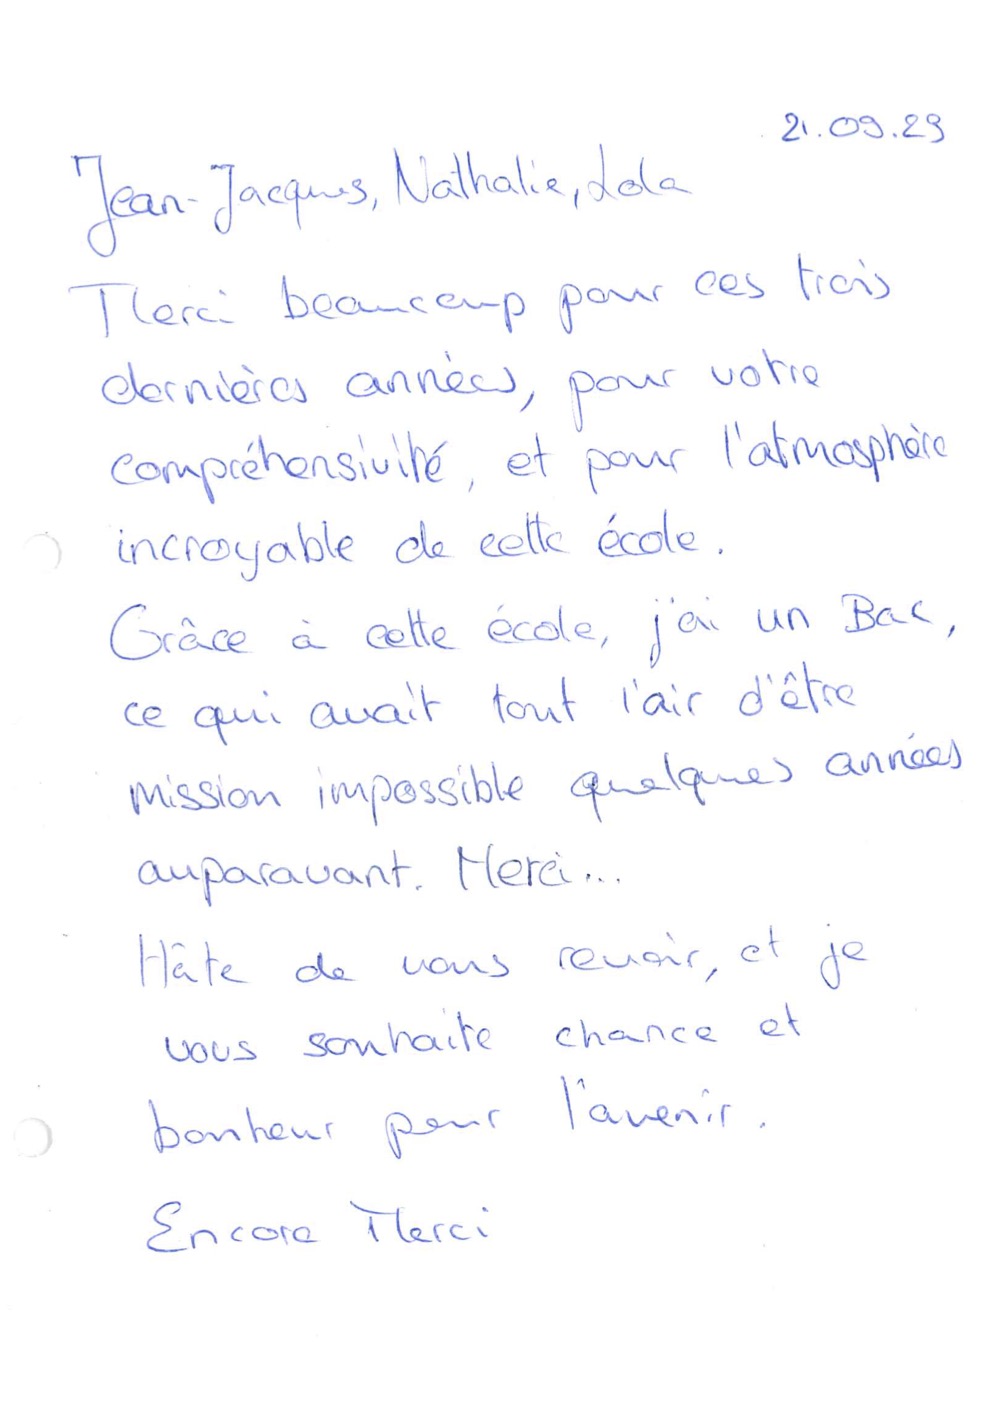 21.09.23
Jean-Jacques, Nathalie, Lola
Merci beaucoup pour ces trois
dernières années, pour votre
compréhensivité, et pour l'atmosphère
incroyable de cette école.
Grâce à cette école, j'ai un Bac,
ce qui avait tout l'air d'être
mission impossible quelques années
auparavant. Merci...
Hâte de vous revoir, et je
vous souhaite chance et
bonheur pour l'avenir.
Encore Merci